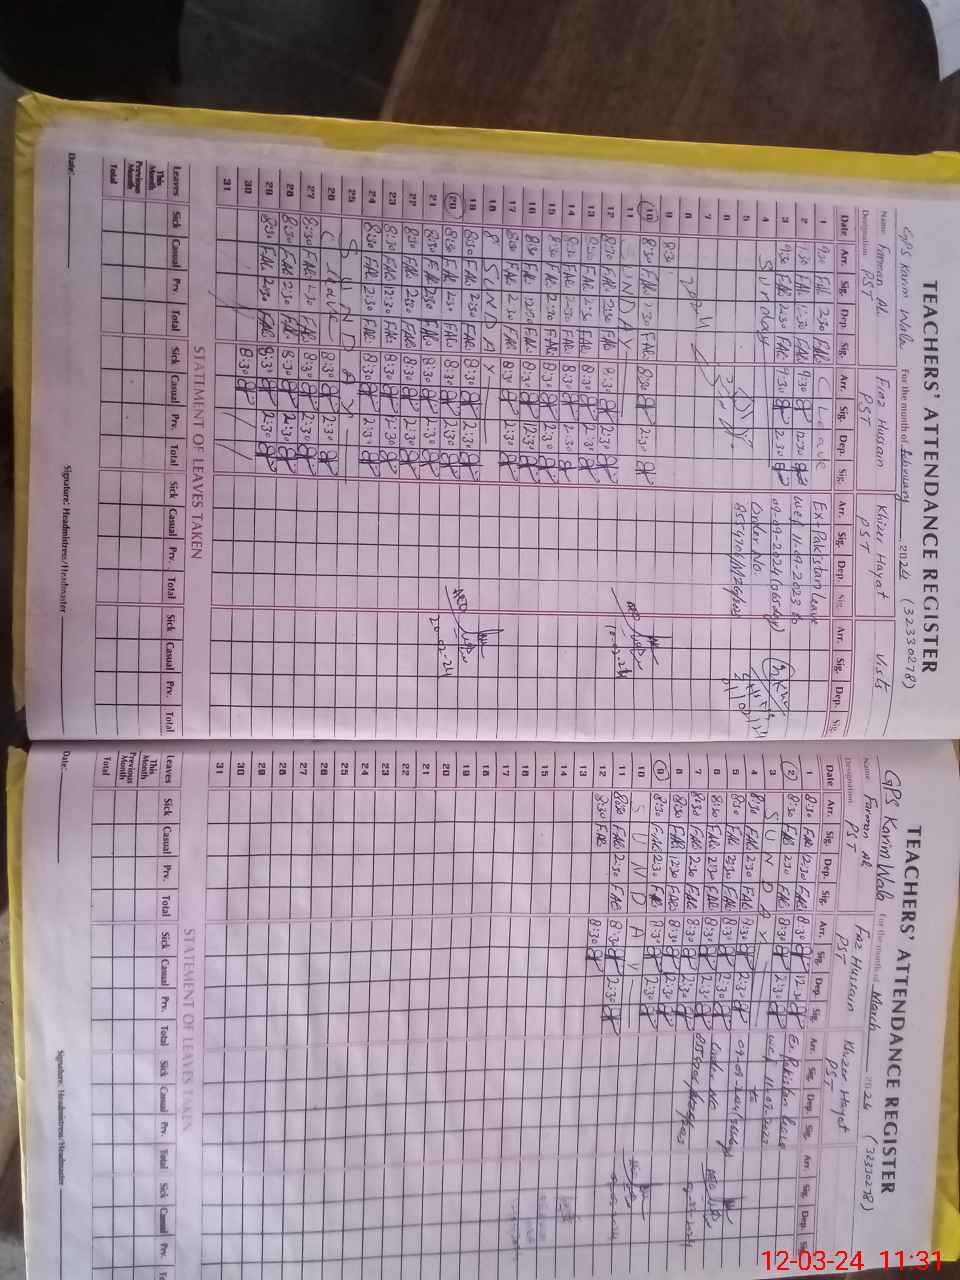 TEACHERS' ATTENDANCE REGISTER
GPS Karim Wala For the month of February 2024 (32330278)
Name Farman Ali Fiaz Hussain Khizer Hayat Visits
Designation PST PST PST
Date Arr. Sig. Dep. Sig. Arr. Sig. Dep. Sig. Arr. Sig. Dep. Sig. Arr. Sig. Dep. Sig.
1 9:30 FAli 2:30 FAli C Leave Ex-Pakistan Leave
2 FAli FAli 9:30 12:30 wef 11-09-2023 to
3 9:30 FAli 2:30 FAli 9:30 2:30 09-09-2024
4 Sunday Order No.
5
6
7
8
9 8:30
10 8:30 FAli 2:30 FAli 8:30 2:30
11 SUNDAY
12 8:30 FAli 2:30 FAli 8:30 2:30
13 8:30 FAli 2:30 FAli 8:30 2:30
14 8:30 FAli 2:30 FAli 8:30 2:30
15 8:30 FAli 2:30 FAli 8:30 2:30
16 8:30 FAli 12:30 FAli 8:30 12:30
17 8:30 FAli 2:30 FAli 8:30 2:30
18 SUNDAY
19 8:30 FAli 2:30 FAli 8:30 2:30
20 8:30 FAli 2:30 FAli 8:30 2:30
20-02-24
21 8:30 FAli 2:30 FAli 8:30 2:30
22 8:30 FAli 2:30 FAli 8:30 2:30
23 8:30 FAli 12:30 FAli 8:30 12:30
24 8:30 FAli 2:30 FAli 8:30 2:30
25 SUNDAY
26 C Leave 8:30 2:30
27 8:30 FAli 2:30 FAli 8:30 2:30
28 8:30 FAli 2:30 FAli 8:30 2:30
29 8:30 FAli 2:30 FAli 8:30 2:30
30 8:30
31
STATEMENT OF LEAVES TAKEN
Leaves Sick Casual Prv. Total Sick Casual Prv. Total Sick Casual Prv. Total Sick Casual Prv. Total
This Month
Previous Month
Total
Date: Signature: Headmistress/Headmaster
TEACHERS' ATTENDANCE REGISTER
GPS Karim Wala For the month of March 2024 (32330278)
Name Farman Ali Fiaz Hussain Khizer Hayat
Designation PST PST PST
Date Arr. Sig. Dep. Sig. Arr. Sig. Dep. Sig. Arr. Sig. Dep. Sig. Arr. Sig. Dep. Sig.
1 8:30 FAli 12:30 FAli 8:30 12:30 Ex. Pakistan leave
2 8:30 FAli 2:30 FAli 8:30 2:30 wef 11-09-2023
3 SUNDAY to
4 8:30 FAli 2:30 FAli 8:30 2:30 09-09-2024
5 8:30 FAli 2:30 FAli 8:30 2:30 Order No
6 8:30 FAli 2:30 FAli 8:30 2:30
7 8:30 FAli 2:30 FAli 8:30 2:30
8 8:30 FAli 12:30 FAli 8:30 12:30
9 8:30 FAli 2:30 FAli 8:30 2:30
10 SUNDAY
11 8:30 FAli 2:30 FAli 8:30 2:30
12 8:30 FAli 8:30
13
14
15
16
17
18
19
20
21
22
23
24
25
26
27
28
29
30
31
STATEMENT OF LEAVES TAKEN
Leaves Sick Casual Prv. Total Sick Casual Prv. Total Sick Casual Prv. Total Sick Casual Prv. Total
This Month
Previous Month
Total
Date: Signature: Headmistress/Headmaster
12-03-24 11:31